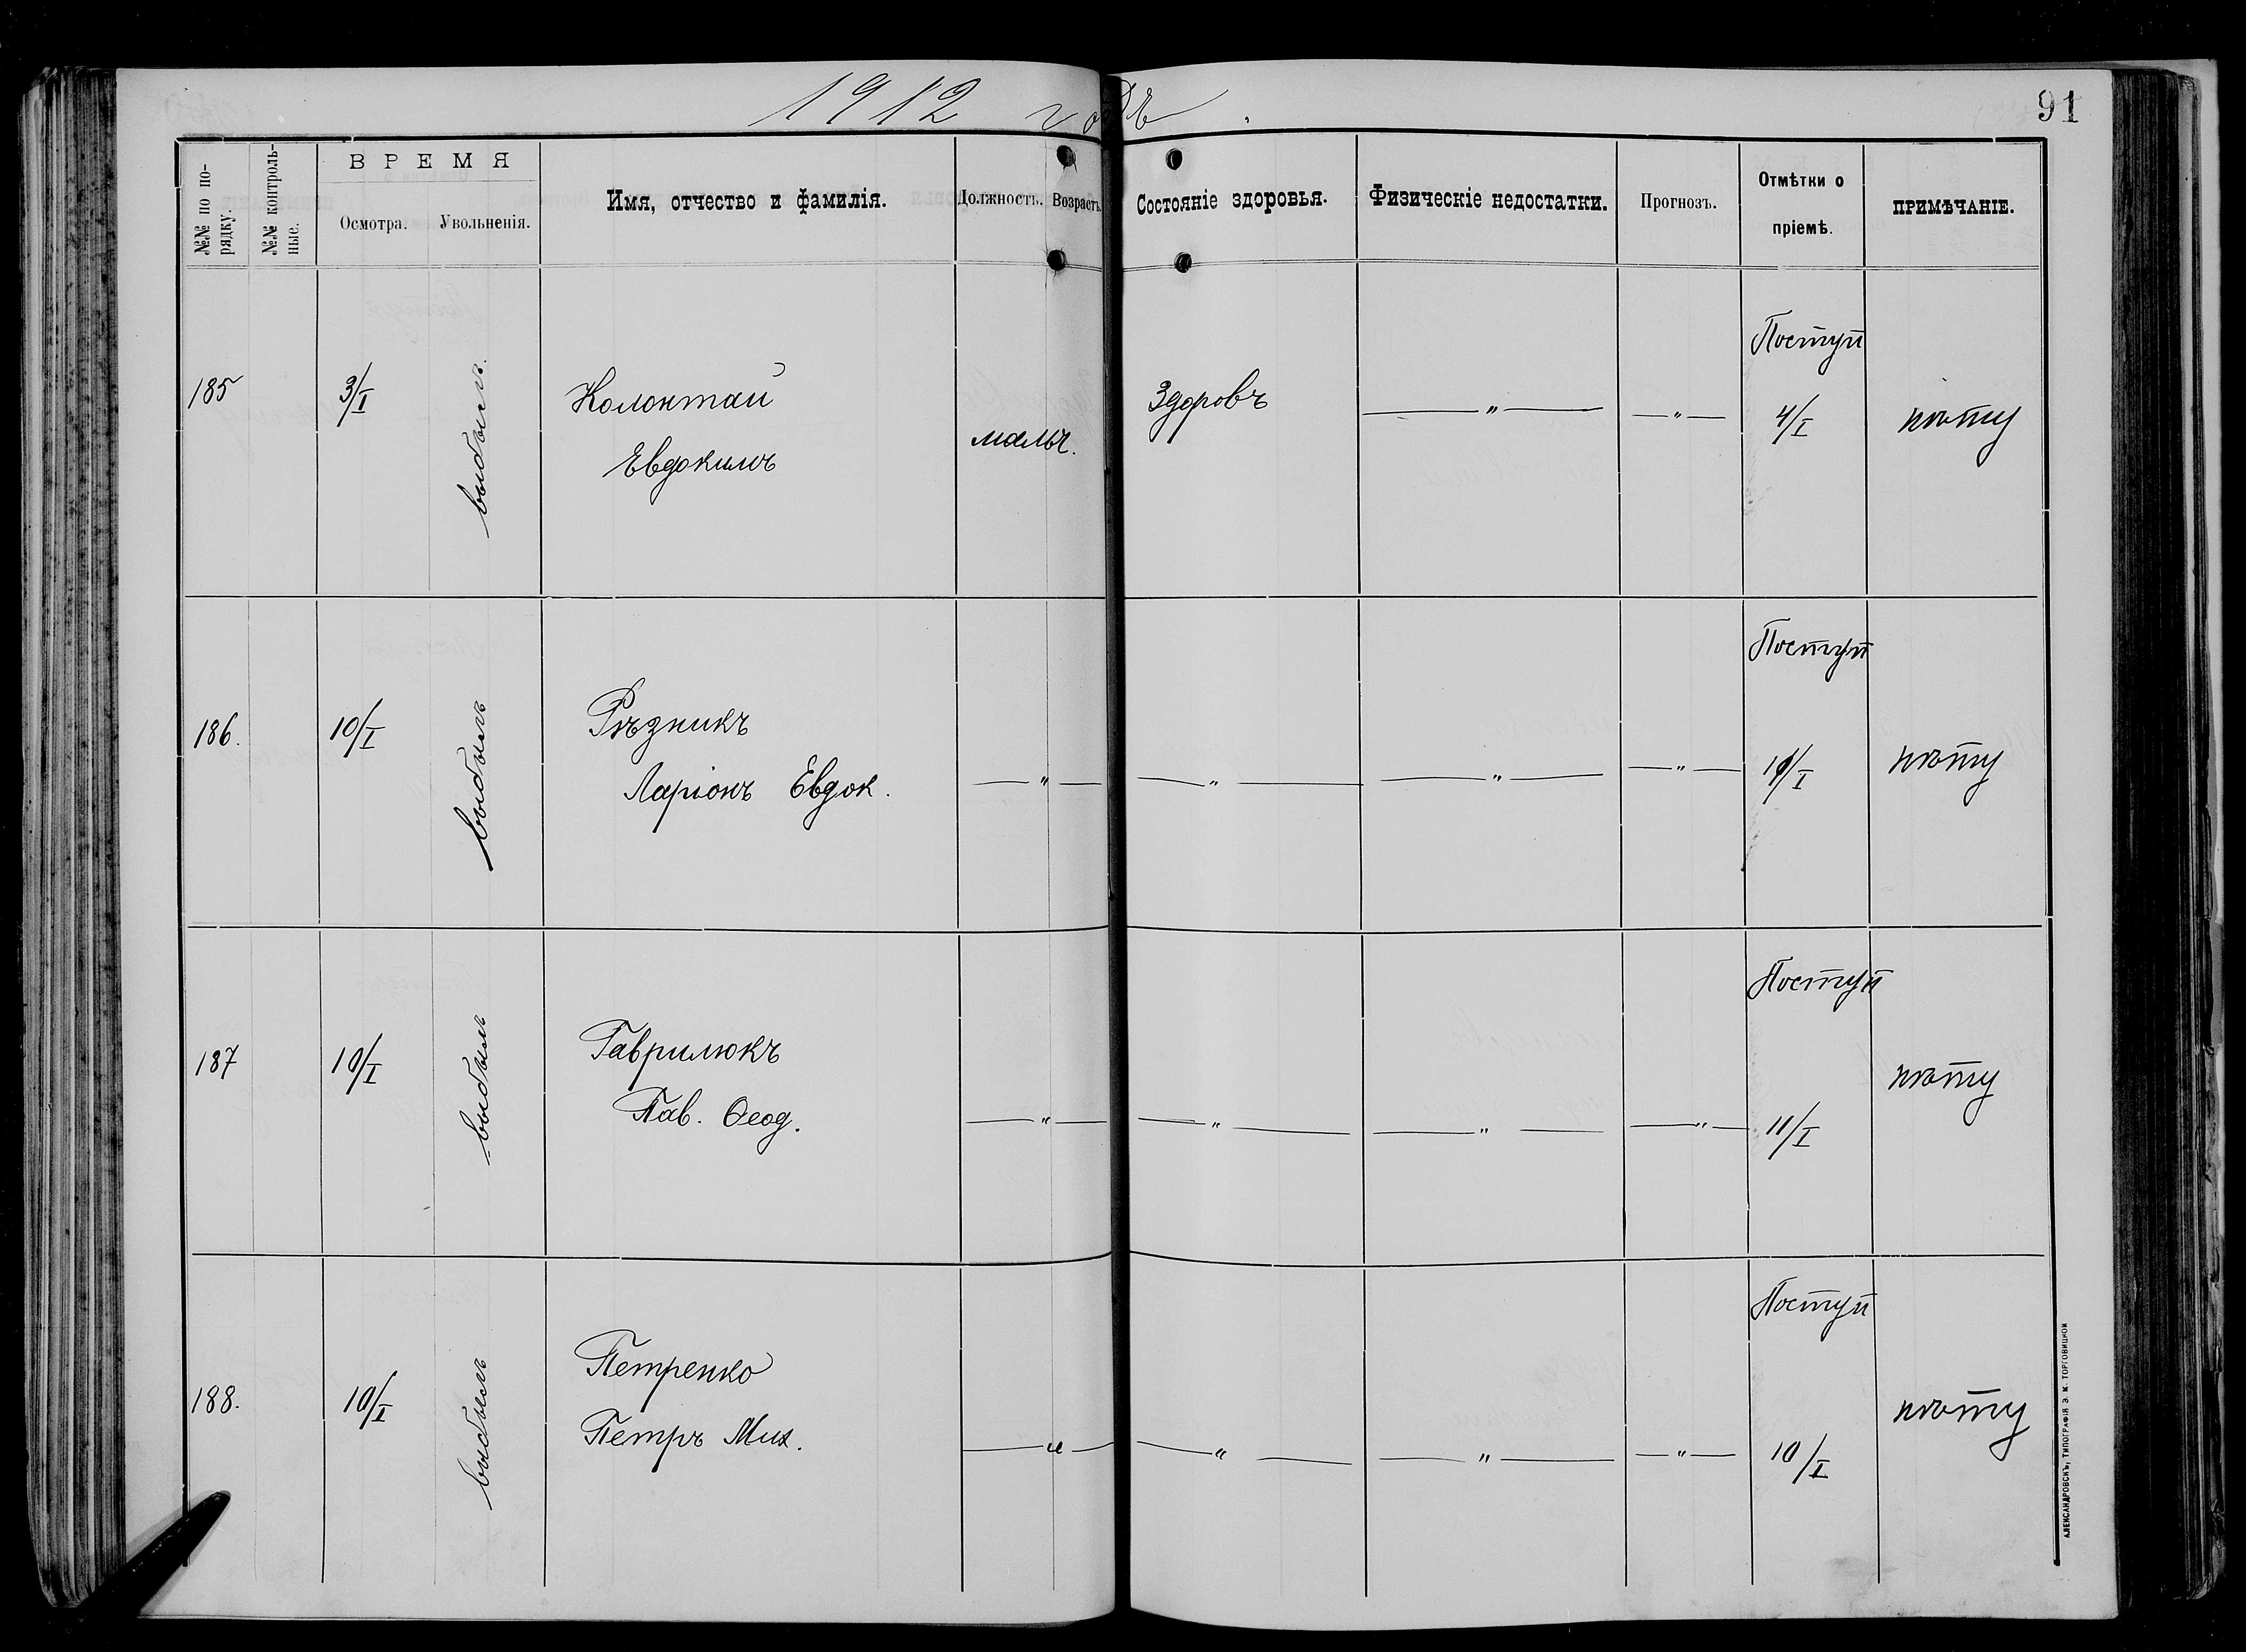 1912 годъ.
91
№№ по по-
рядку.
№№ контроль-
ные.
ВРЕМЯ
Осмотра.
Увольненія.
Имя, отчество и фамилія.
Должность.
Возрастъ.
Состояніе здоровья.
Физическіе недостатки.
Прогнозъ.
Отмѣтки о
пріемѣ.
ПРИМѢЧАНІЕ.
185
3/I
выбылъ.
Колонтай
Евдокимъ
мальч.
Здоровъ
— " —
— " —
Поступ
4/I
186.
10/I
выбылъ
Рѣзникъ
Ларіонъ Евдок.
— " —
— " —
— " —
— " —
Поступ
10/I
187
10/I
выбылъ
Гаврилюкъ
Пав. Ѳеод.
— " —
— " —
— " —
— " —
Поступ
11/I
188.
10/I
выбылъ
Петренко
Петръ Мих.
— " —
— " —
— " —
— " —
Поступ
10/I
АЛЕКСАНДРОВСКЪ, ТИПОГРАФІЯ Э. М. ТОРГОВИЦКОЙ